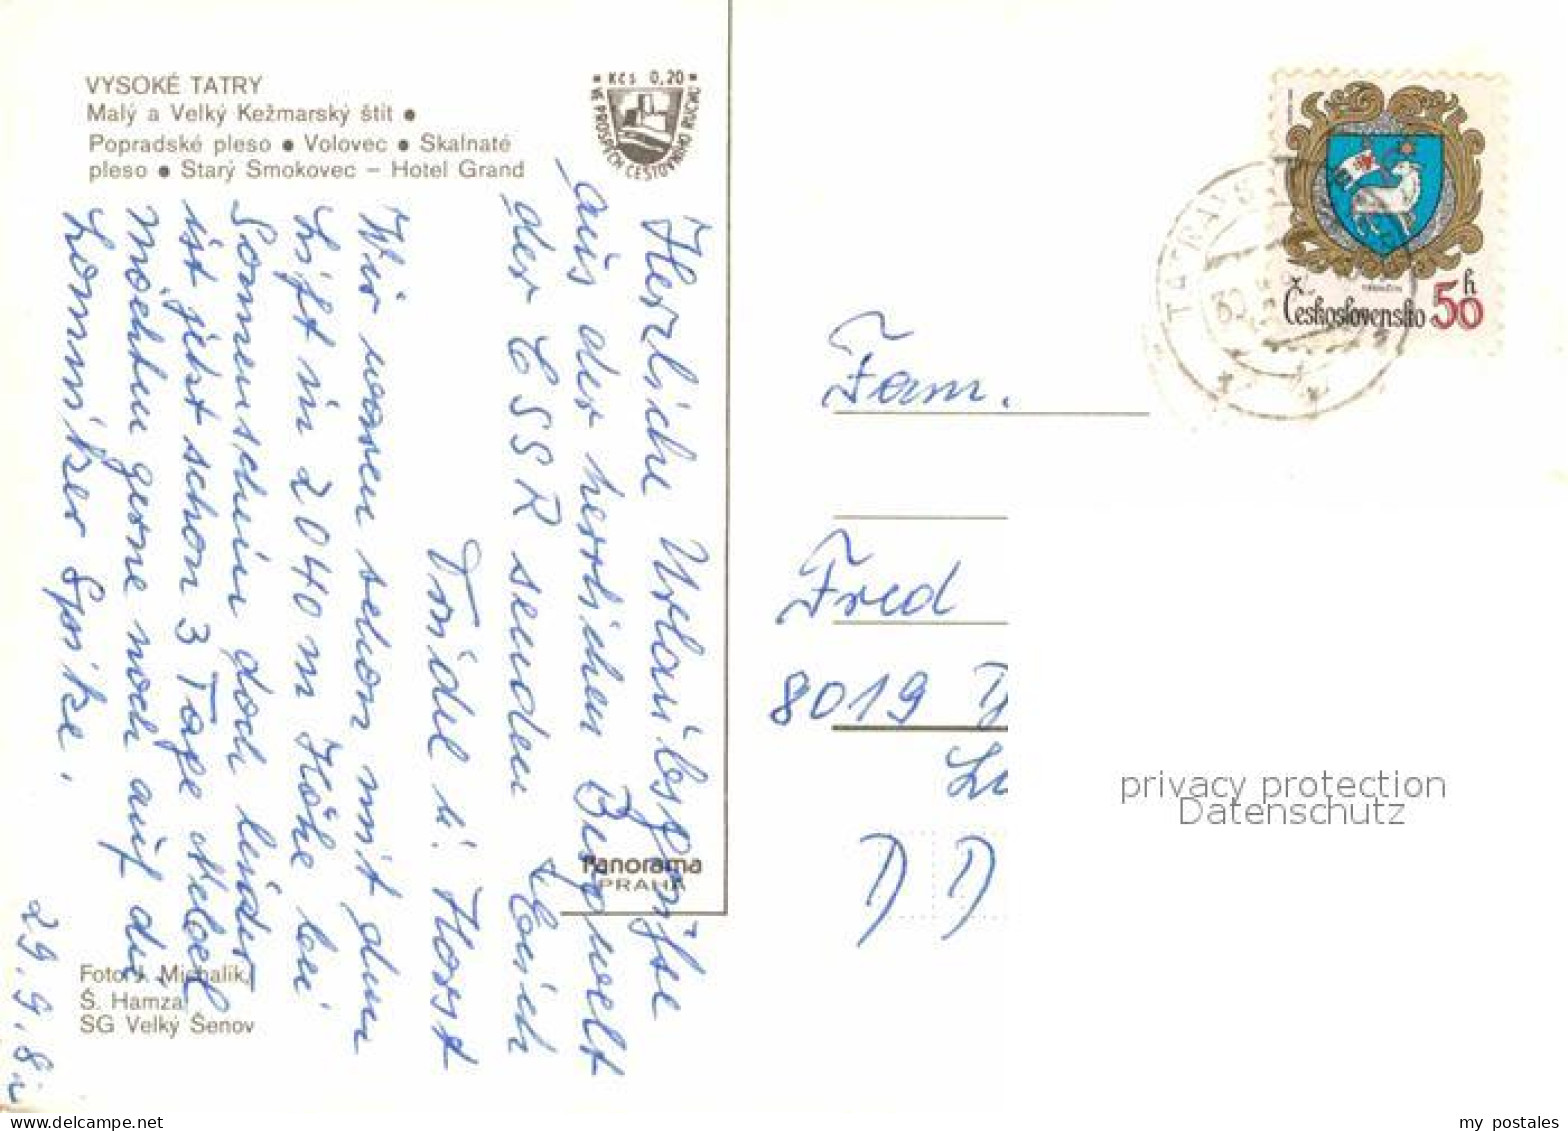 VYSOKÉ TATRY
Malý a Velký Kežmarský štít •
Popradské pleso • Volovec • Skalnaté
pleso • Starý Smokovec – Hotel Grand
Kčs 0,20
VE PROSPĚCH CESTOVNÍHO RUCHU
Herzliche Urlaubsgrüße
aus der herrlichen Bergwelt
der ČSSR senden Euch
Trudel u. Horst
Wir waren schon mit dem
Lift in 2040 m Höhe bei
Sonnenschein doch leider
ist jetzt schon 3 Tage Nebel
Möchten gerne noch auf die
Lomnitzer Spitze.
29.9.8
Panorama
PRAHA
Foto J. Michalík,
Š. Hamza
SG Velký Šenov
Československo 50 h
Fam.
Fred
8019 D
DD
privacy protection
Datenschutz
my postales